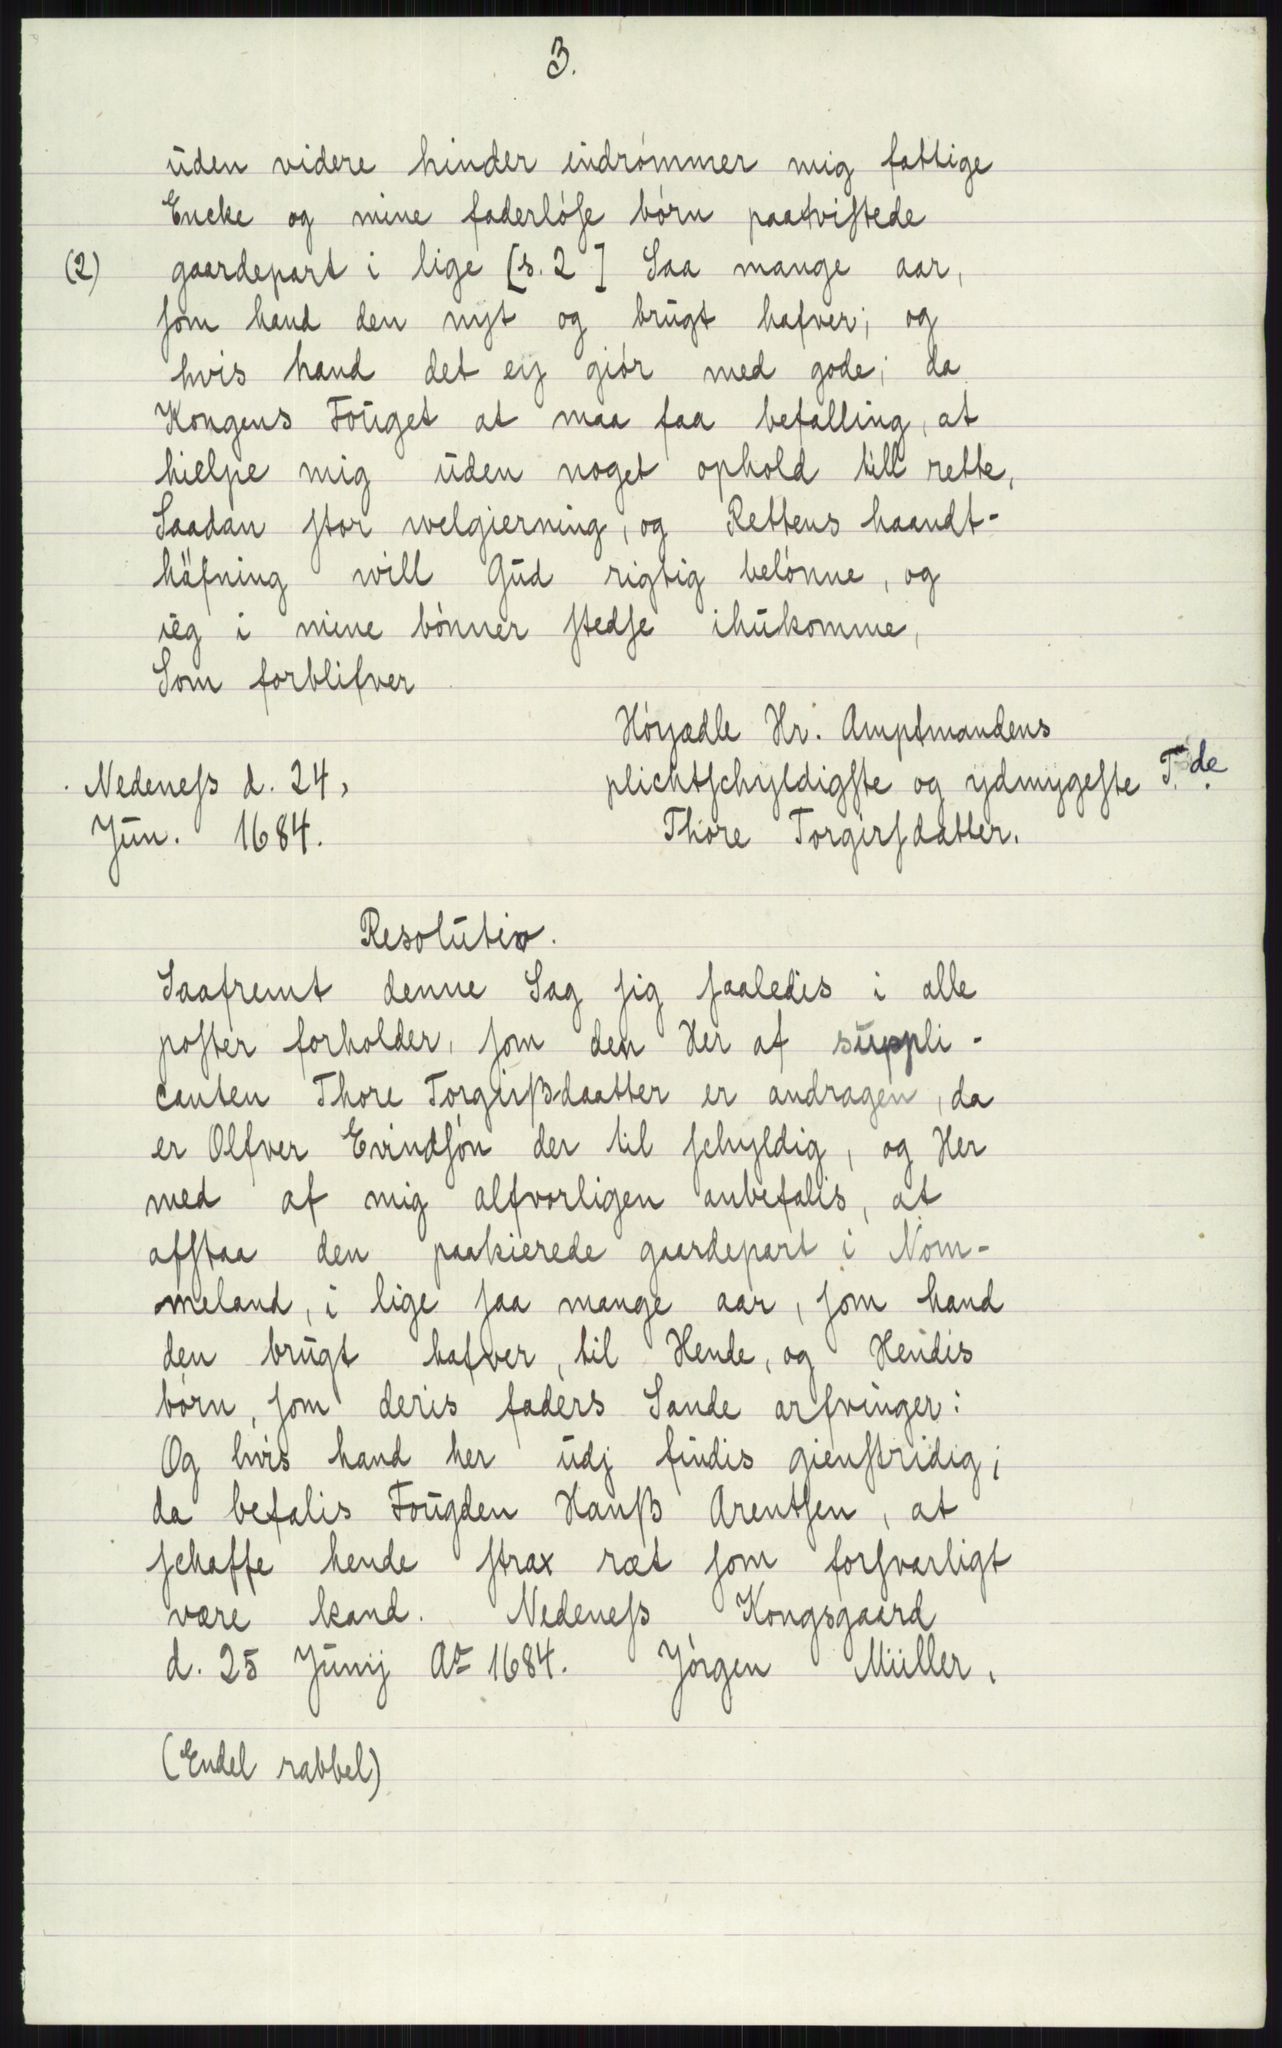 3.
uden videre hinder indrømmer mig fattige
Encke og mine faderløse børn paatvistede
(2) gaardepart i lige [s. 2] Saa mange aar,
som hand den nyt og brugt hafver; og
hvis hand det eij giør med gode; da
Kongens Fouget at maa faa befalling, at
hielpe mig uden noget ophold till rette,
Saadan stor welgierning, og Rettens haandt-
häfning will Gud rigtig belønne, og
ieg i mine bønner stedse ihukomme,
Som forblifver
Høyædle Hr. Amptmandens
plichtschyldigste og ydmygeste T. de.
Thore Torgirsdatter.
Nedeness d. 24,
Jun. 1684.
Resolutio.
Saafremt denne Sag sig saaledis i alle
poster forholder, som den Her af suppli-
canten Thore Torgirßdaatter er andragen, da
er Olfver Evindsøn der til schyldig, og Her
med af mig alfvorligen anbefalis, at
afstaa den paakierede gaardepart i Nom-
meland, i lige saa mange aar, som hand
den brugt hafver, til Hende, og Hendis
børn, som deris faders Sande arfvinger:
Og hvis hand her udj findis gienstridig;
da befalis Fougden Hanß Arentsen, at
schaffe hende strax ræt som forsvarligt
være kand. Nedeness Kongsgaard
d. 25 Junij Ao 1684. Jørgen Müller.
(Endel rabbel)